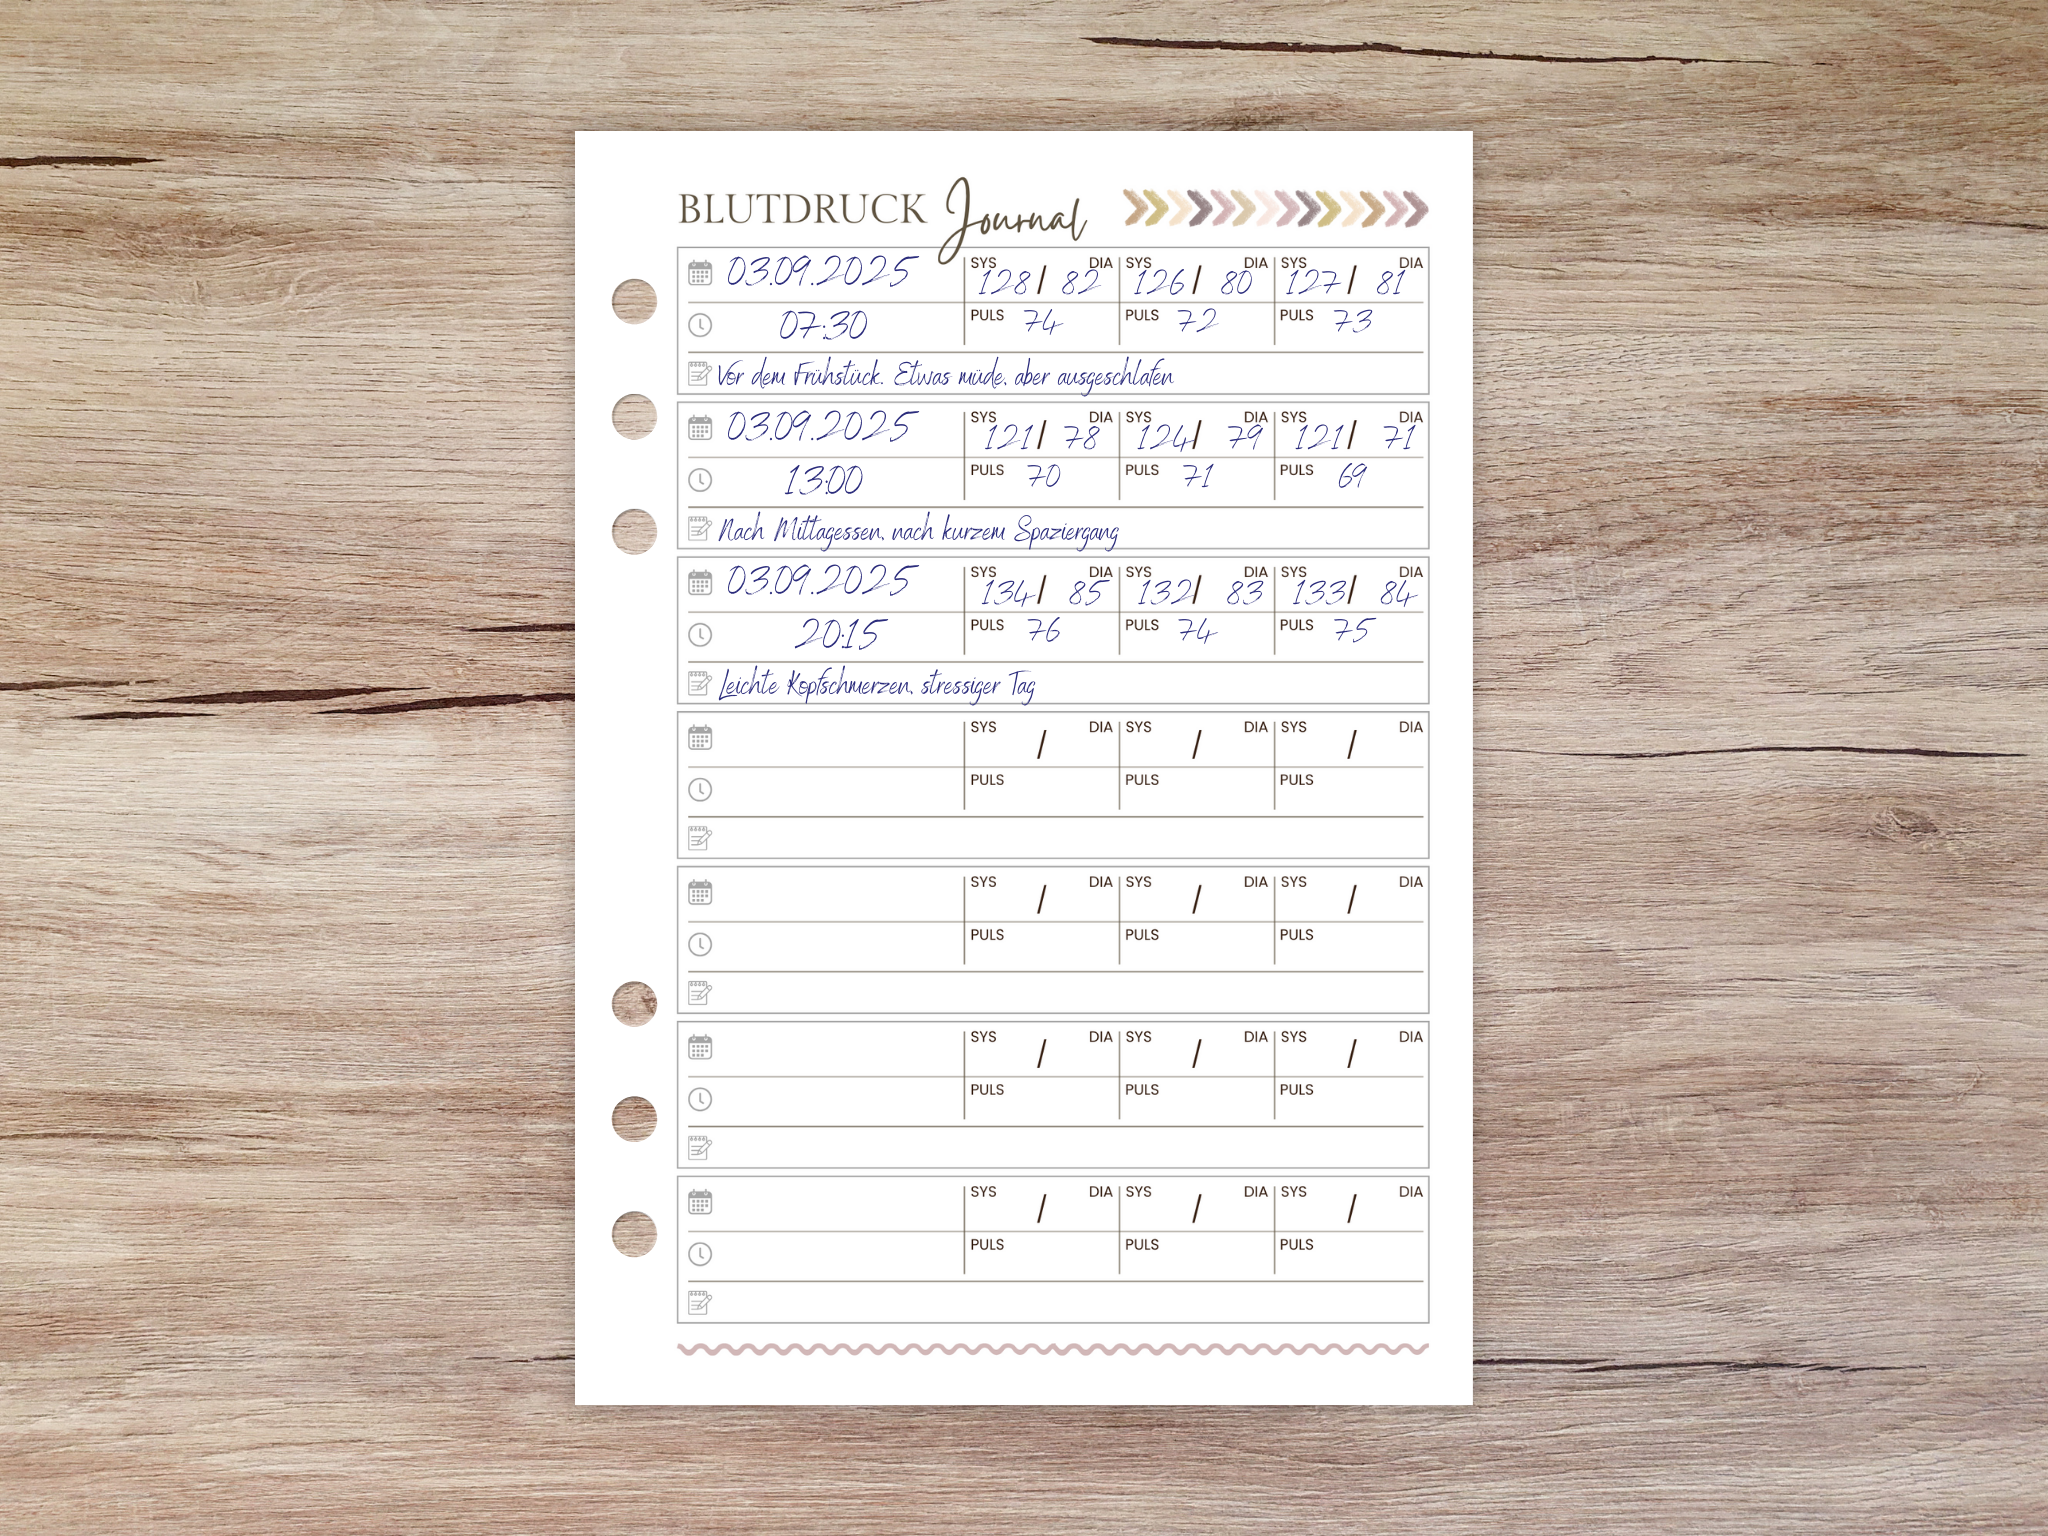 BLUTDRUCK Journal
03.09.2025 SYS 128 / DIA 82 SYS 126 / DIA 80 SYS 127 / DIA 81
07:30 PULS 74 PULS 72 PULS 73
Vor dem Frühstück. Etwas müde, aber ausgeschlafen
03.09.2025 SYS 121 / DIA 78 SYS 124 / DIA 79 SYS 121 / DIA 71
13:00 PULS 70 PULS 71 PULS 69
Nach Mittagessen, nach kurzem Spaziergang
03.09.2025 SYS 134 / DIA 85 SYS 132 / DIA 83 SYS 133 / DIA 84
20:15 PULS 76 PULS 74 PULS 75
Leichte Kopfschmerzen, stressiger Tag
SYS / DIA SYS / DIA SYS / DIA
PULS PULS PULS
SYS / DIA SYS / DIA SYS / DIA
PULS PULS PULS
SYS / DIA SYS / DIA SYS / DIA
PULS PULS PULS
SYS / DIA SYS / DIA SYS / DIA
PULS PULS PULS